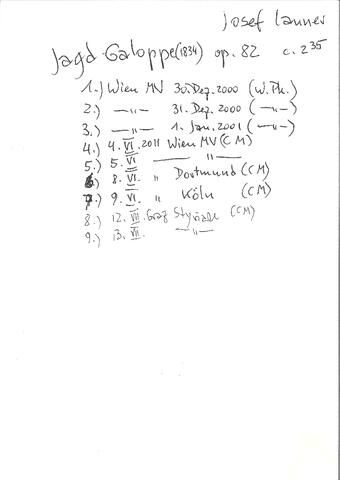 Josef Lanner
Jagd-Galoppe (1834) op. 82 c. 2'35
1.) Wien MV 30. Dez. 2000 (W. Ph.)
2.) —"— 31. Dez. 2000 (—"—)
3.) —"— 1. Jan. 2001 (—"—)
4.) 4. VI. 2011 Wien MV (CM)
5.) 5. VI. —"—
6.) 8. VI. " Dortmund (CM)
7.) 9. VI. " Köln (CM)
8.) 12. VII. Graz Styriarte (CM)
9.) 13. VI. —"—